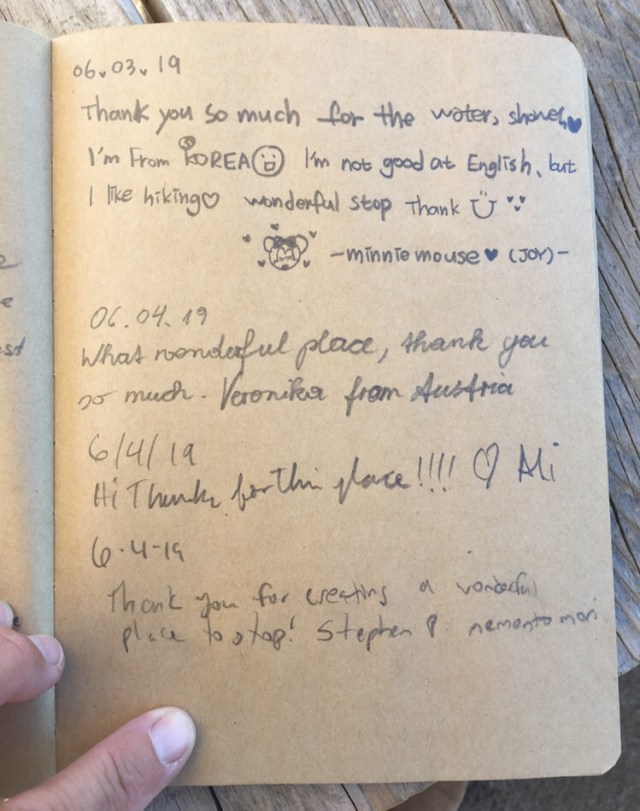 06.03.19
Thank you so much for the water, shower,♥
I'm From KOREA I'm not good at English, but
I like hiking♡ wonderful stop Thank
-minnie mouse♥ (JOY)-
06.04.19
What wonderful place, thank you
so much. Veronika from Austria
6/4/19
Hi Thanks for this place!!!! ♡ Ali
6-4-19
Thank you for creating a wonderful
place to stop! Stephen P. memento mori
2
e
st